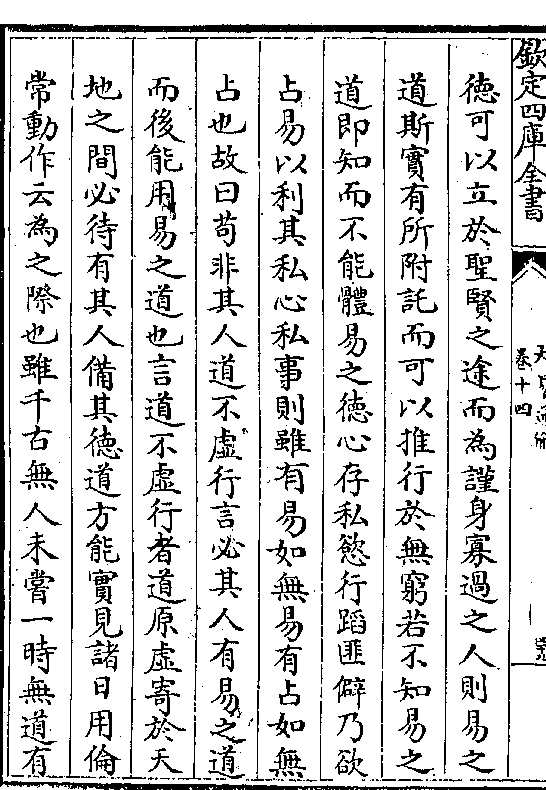 欽定四庫全書
卷十四
德可以立於聖賢之途而為謹身寡過之人則易之
道斯實有所附託而可以推行於無窮若不知易之
道即知而不能體易之德心存私慾行蹈匪僻乃欲
占易以利其私心私事則雖有易如無易有占如無
占也故曰苟非其人道不虛行言必其人有易之道
而後能用易之道也言道不虛行者道原虛寄於天
地之間必待有其人備其德道方能實見諸日用倫
常動作云為之際也雖千古無人未嘗一時無道有